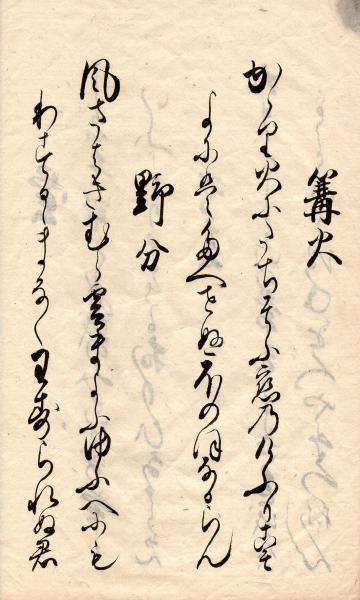 篝火
かゝり火にたちそふ恋乃けふりこそ
よにはたへせぬほのほなるらん
野分
風さはきむら雲まよふゆふへにも
わするゝまなくわすられぬ君